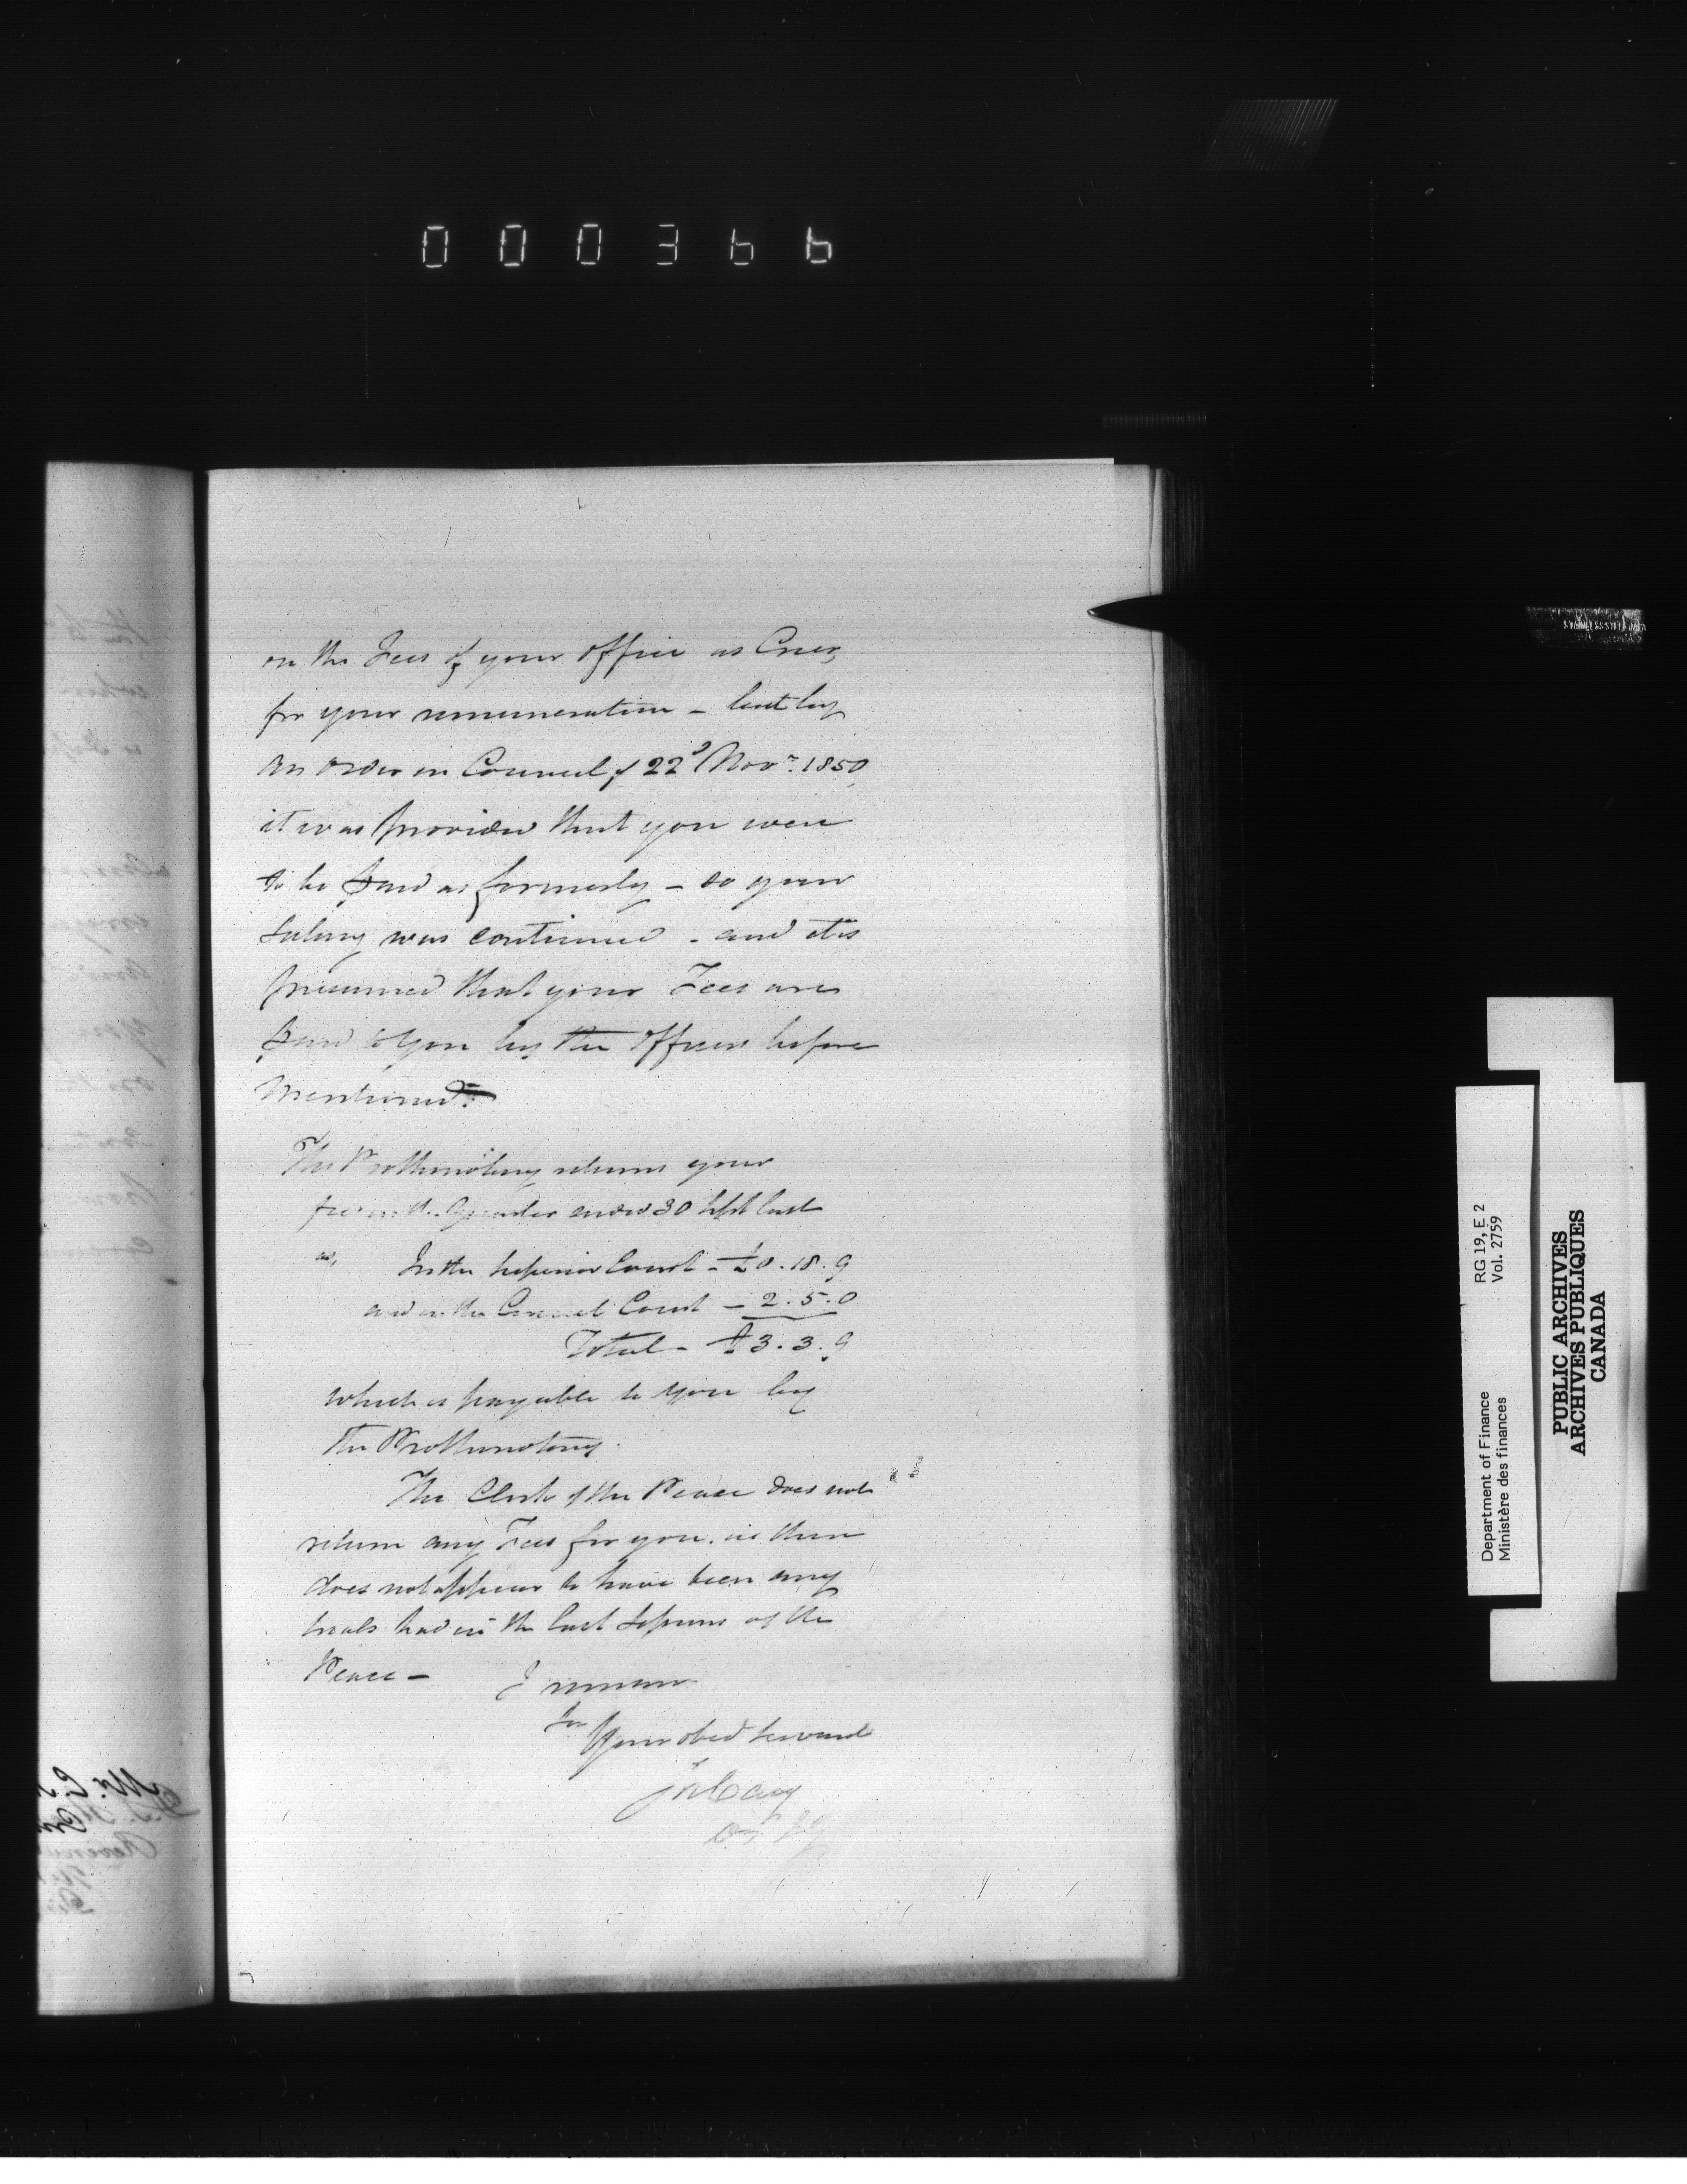 000366
on the Fees of your office as Crier,
for your remuneration - but by
an order in Council of 22d Novr. 1850
it was provided that you were
to be paid as formerly - so your
Salary was continued - and it is
presumed that your Fees are
paid to you by the officers before
mentioned.
The Prothonotary returns your
fees in the Quarter ended 30 Sept last
as, In the Superior Court - £0.18.9
and in the Circuit Court - 2.5.0
Total - £3.3.9
which is payable to you by
the Prothonotary.
The Clerk of the Peace does not
return any Fees for you. as there
does not appear to have been any
trials had in the last Sessions of the
Peace - I remain
Your obed servant
Jos Cary
RG 19, E 2
Vol. 2759
Department of Finance
Ministère des finances
PUBLIC ARCHIVES
ARCHIVES PUBLIQUES
CANADA